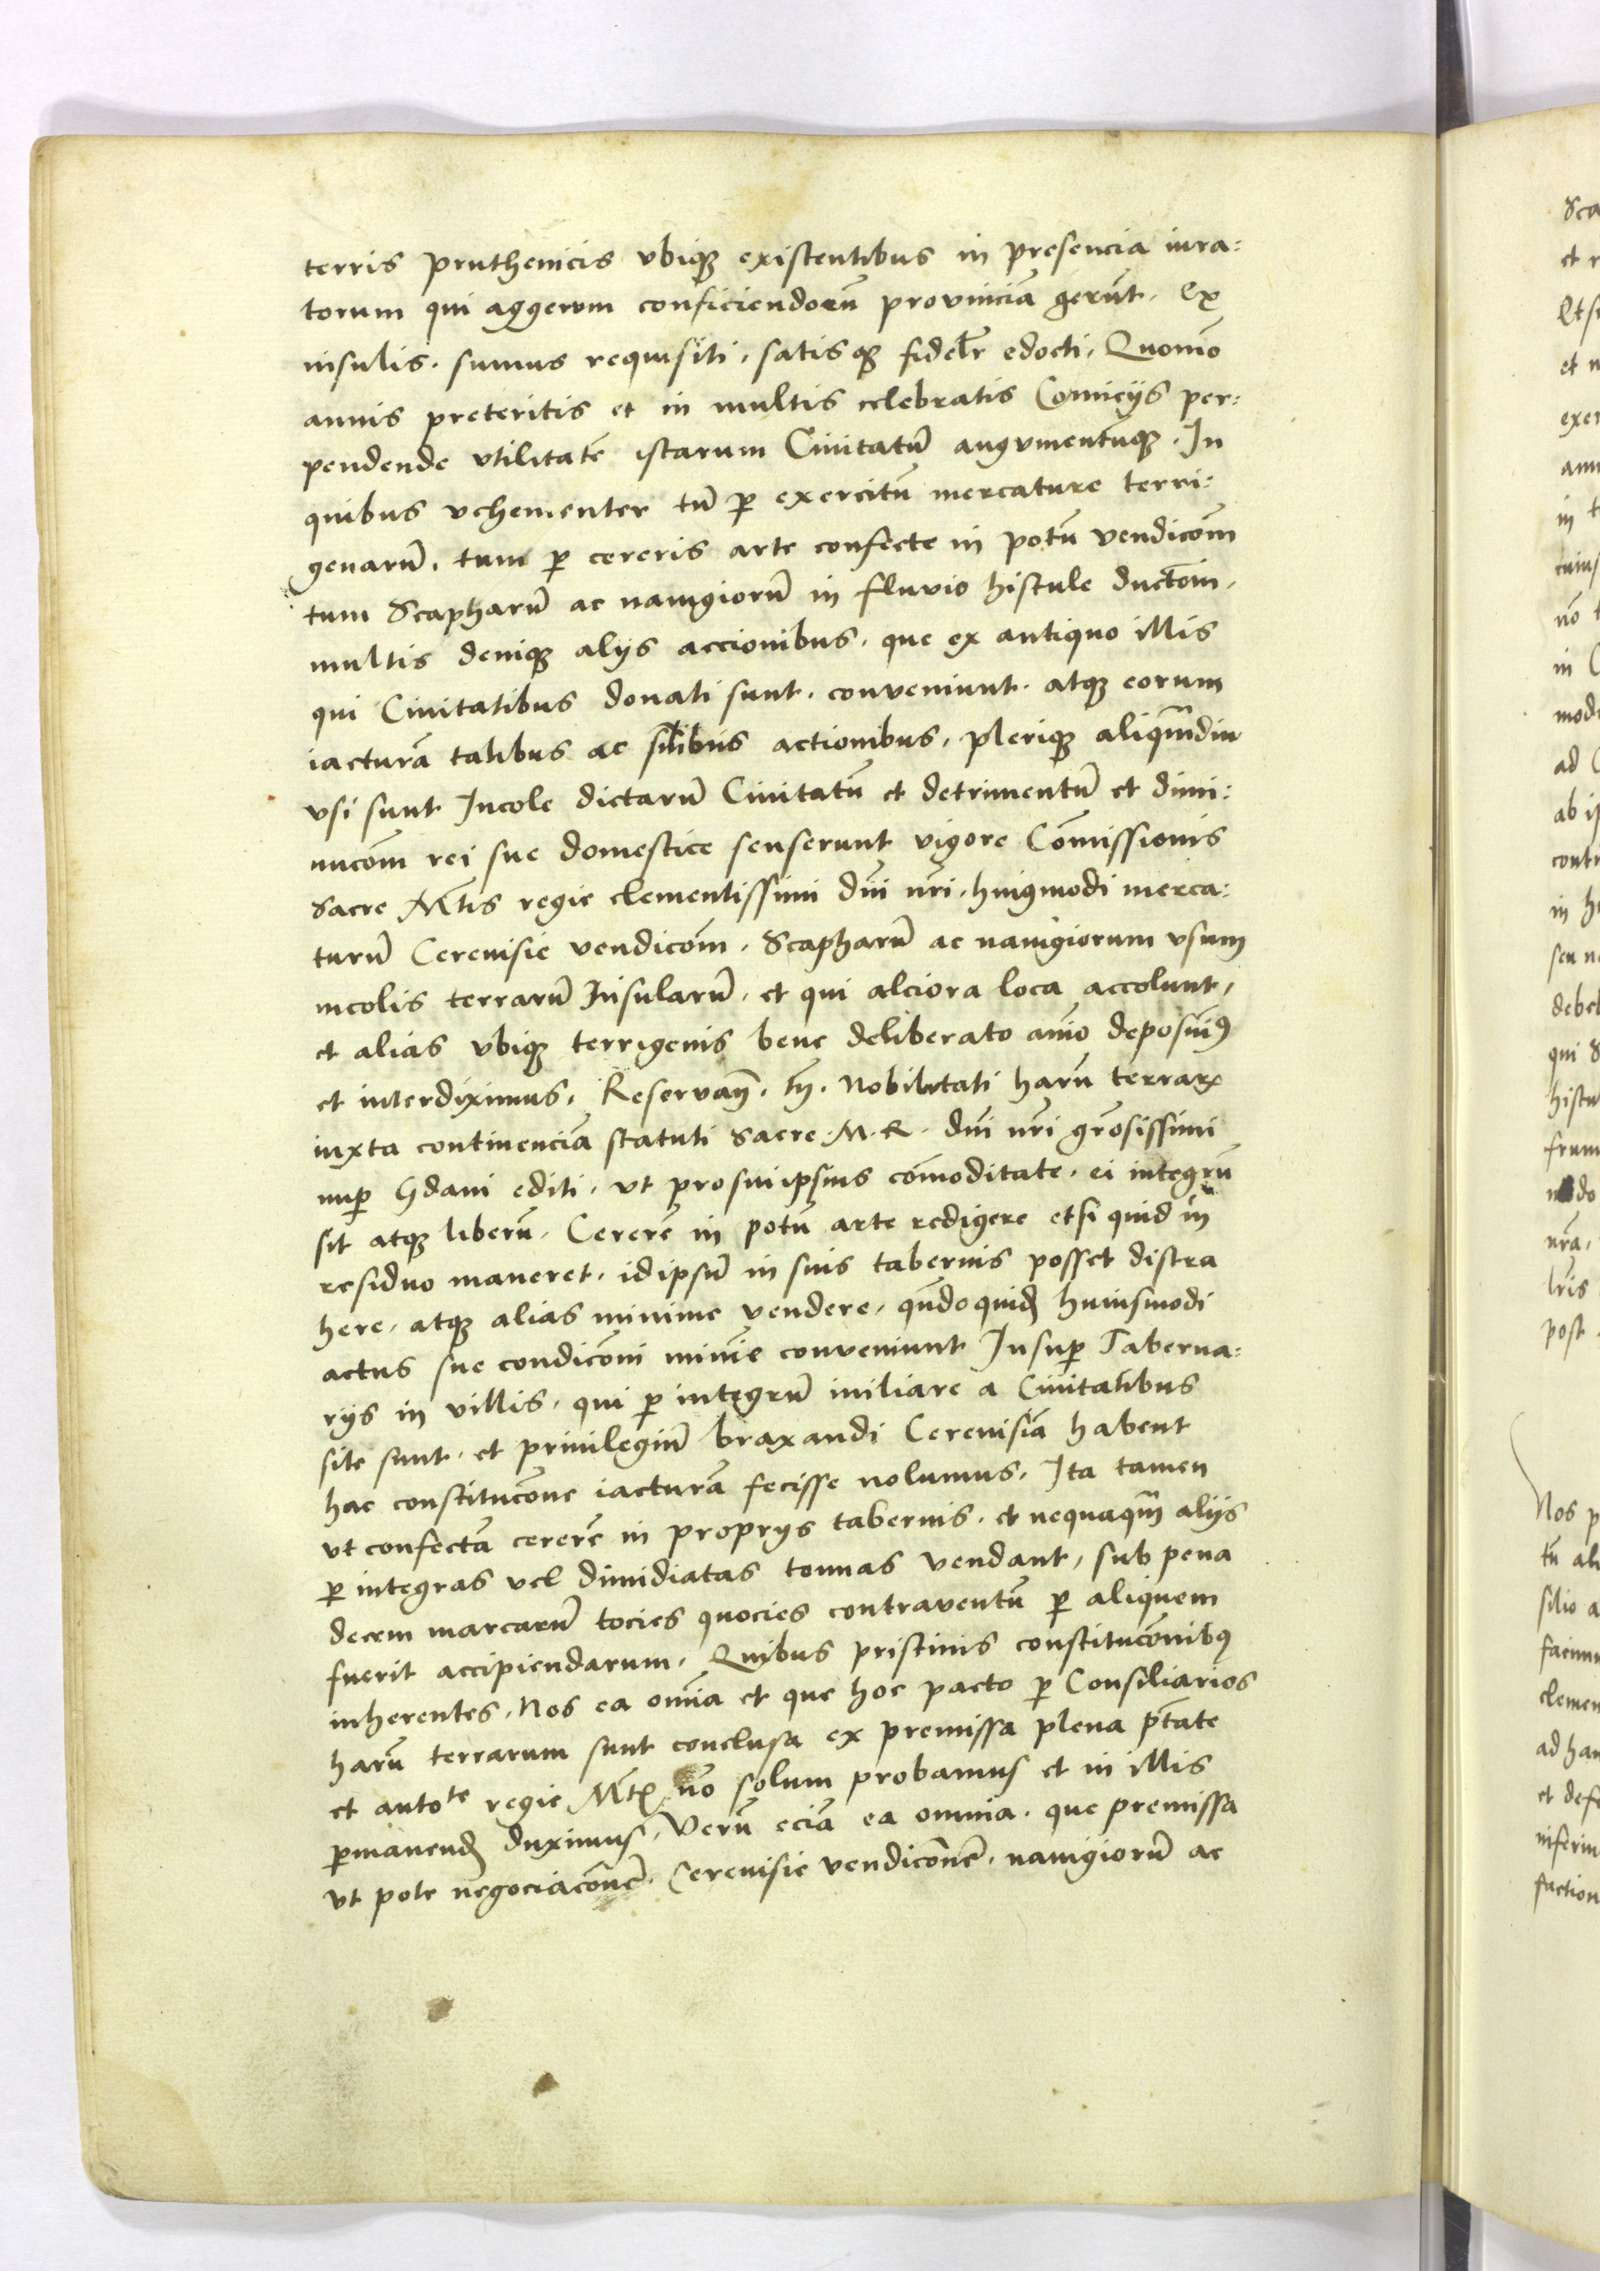 terris pruthenicis vbiqꝫ existentibus in presencia iura:
torum qui aggerum conficiendorū provinciā gerūt. Ex
insulis. sumus requisiti. satisqꝫ fidelr̄ edocti. Quomō
annis preteritis et in multis celebratis Comicijs per:
pendende vtilitatē istarum Ciuitatū augumentūqꝫ. In
quibus vehementer tū ꝑ exercitū mercature terri:
genarū. tum ꝑ cereris arte confecte in potū vendicōm
tum Scapharū ac nauigiorū in fluvio histule ductōm.
multis deniqꝫ alijs accionibus. que ex antiquo illis
qui Ciuitatibus donati sunt. conveniunt. atqꝫ eorum
iacturā talibus ac sīlibus actionibus. pleriqꝫ aliqm̄diu
vsi sunt Incole dictarū Ciuitatū et detrimentū et dimi:
nucōm rei sue domestice senserunt vigore Cōmissionis
Sacre Mt̄is regie clementissimi dn̄i nr̄i. huiꝰmodi merca:
turū Cereuisie vendicōm. Scapharū ac nauigiorum vsum
incolis terrarū Insularū. et qui alciora loca accolunt.
et alias vbiqꝫ terrigenis bene deliberato aīo deposuimꝰ
et interdiximus. Reservan̄. tn̄. Nobilitati harū terrarꝝ
iuxta continenciā statuti Sacre. M. R. dn̄i nr̄i grōsissimi
nuꝑ Gdani editi. vt pro sui ipsius cōmoditate. ei integrū
sit atqꝫ liberū. Cererē in potū arte redigere etsi quid in
residuo maneret. id ipsū in suis tabernis posset distra
here. atqꝫ alias minime vendere. qn̄doquidē huiusmodi
actus sue condicōni minīe conveniunt Insuꝑ Taberna:
rijs in villis. qui ꝑ integrū miliare a Ciuitatibus
site sunt. et priuilegiū braxandi Cereuisiā habent
hac constitucōne iacturā fecisse nolumus. Ita tamen
vt confectā cererē in proprijs tabernis. et nequaqm̄ alijs
ꝑ integras vel dimidiatas tonnas vendant. sub pena
decem marcarū tocies quocies contraventū ꝑ aliquem
fuerit accipiendarum. Quibus pristinis constitucōnibꝰ
inherentes. Nos ea om̄ia et que hoc pacto ꝑ Consiliarios
harū terrarum sunt conclusa ex premissa plena ptāte
et autoᵗᵉ regie Mt̄is nō solum probamus et in illis
ꝑmanendū duximus. Verū eciā ea omnia. que premissa
vt pote negociacōnē. Cereuisie vendicōnē. nauigiorū ac